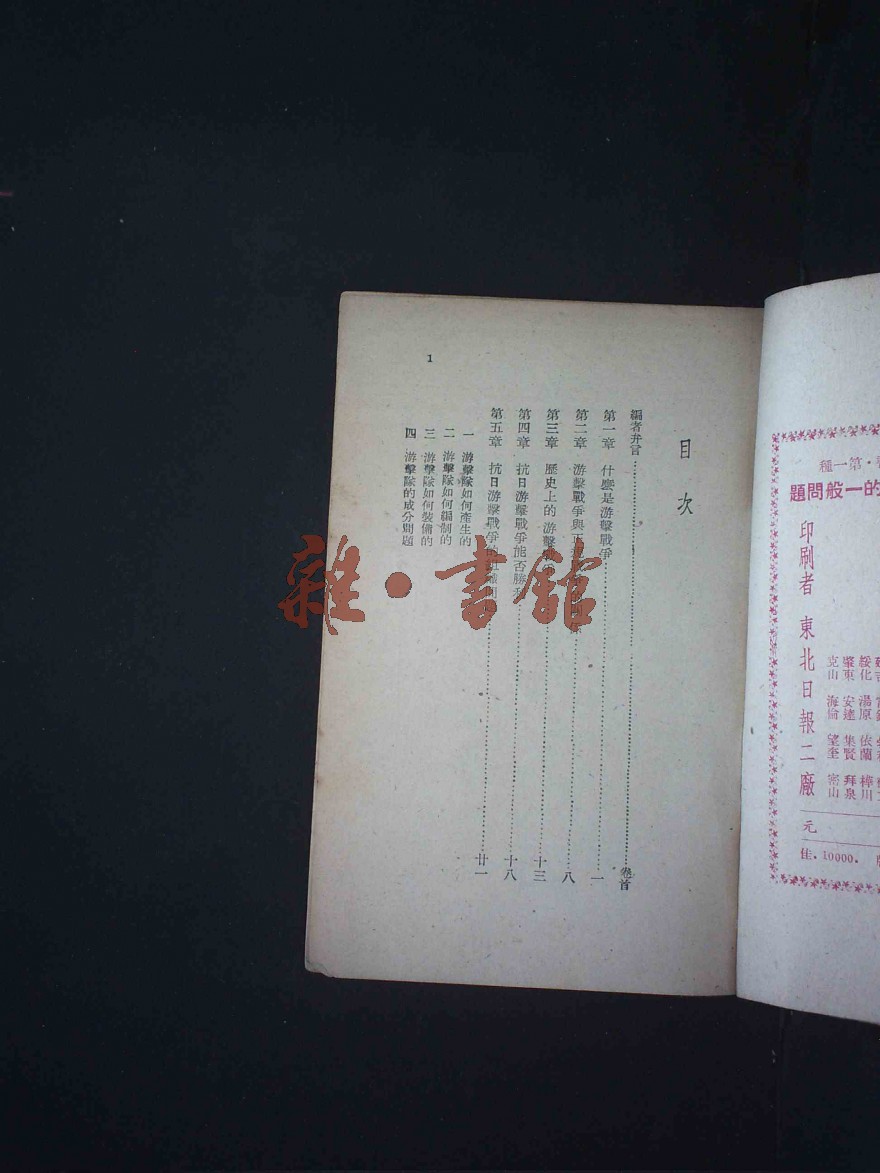 種一第・
題問般一的
印刷者 東北日報二廠
綏化 湯原 依蘭 樺川
肇東 安達 集賢 拜泉
克山 海倫 望奎 密山
元
佳．10000．
目次
編者弁言……卷首
第一章 什麼是游擊戰爭……一
第二章 游擊戰爭與正……八
第三章 歷史上的游擊……十三
第四章 抗日游擊戰爭能否勝利……十八
第五章 抗日游擊戰爭的組織問……廿一
一 游擊隊如何產生的
二 游擊隊如何編制的
三 游擊隊如何裝備的
四 游擊隊的成分問題
1
雜・書館